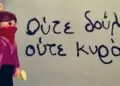 Ούτε δούλ
ούτε κυρά